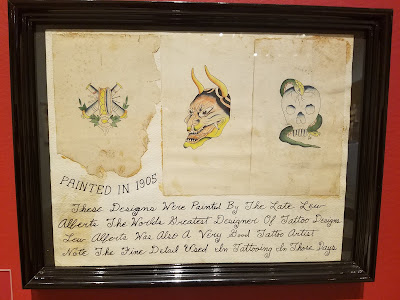 PAINTED IN 1905
These Designs Were Painted By The Late Lew
Alberts The Worlds Greatest Designer Of Tattoo Designs
Lew Alberts Was Also A Very Good Tattoo Artist
Note The Fine Detail Used In Tattooing In Those Days